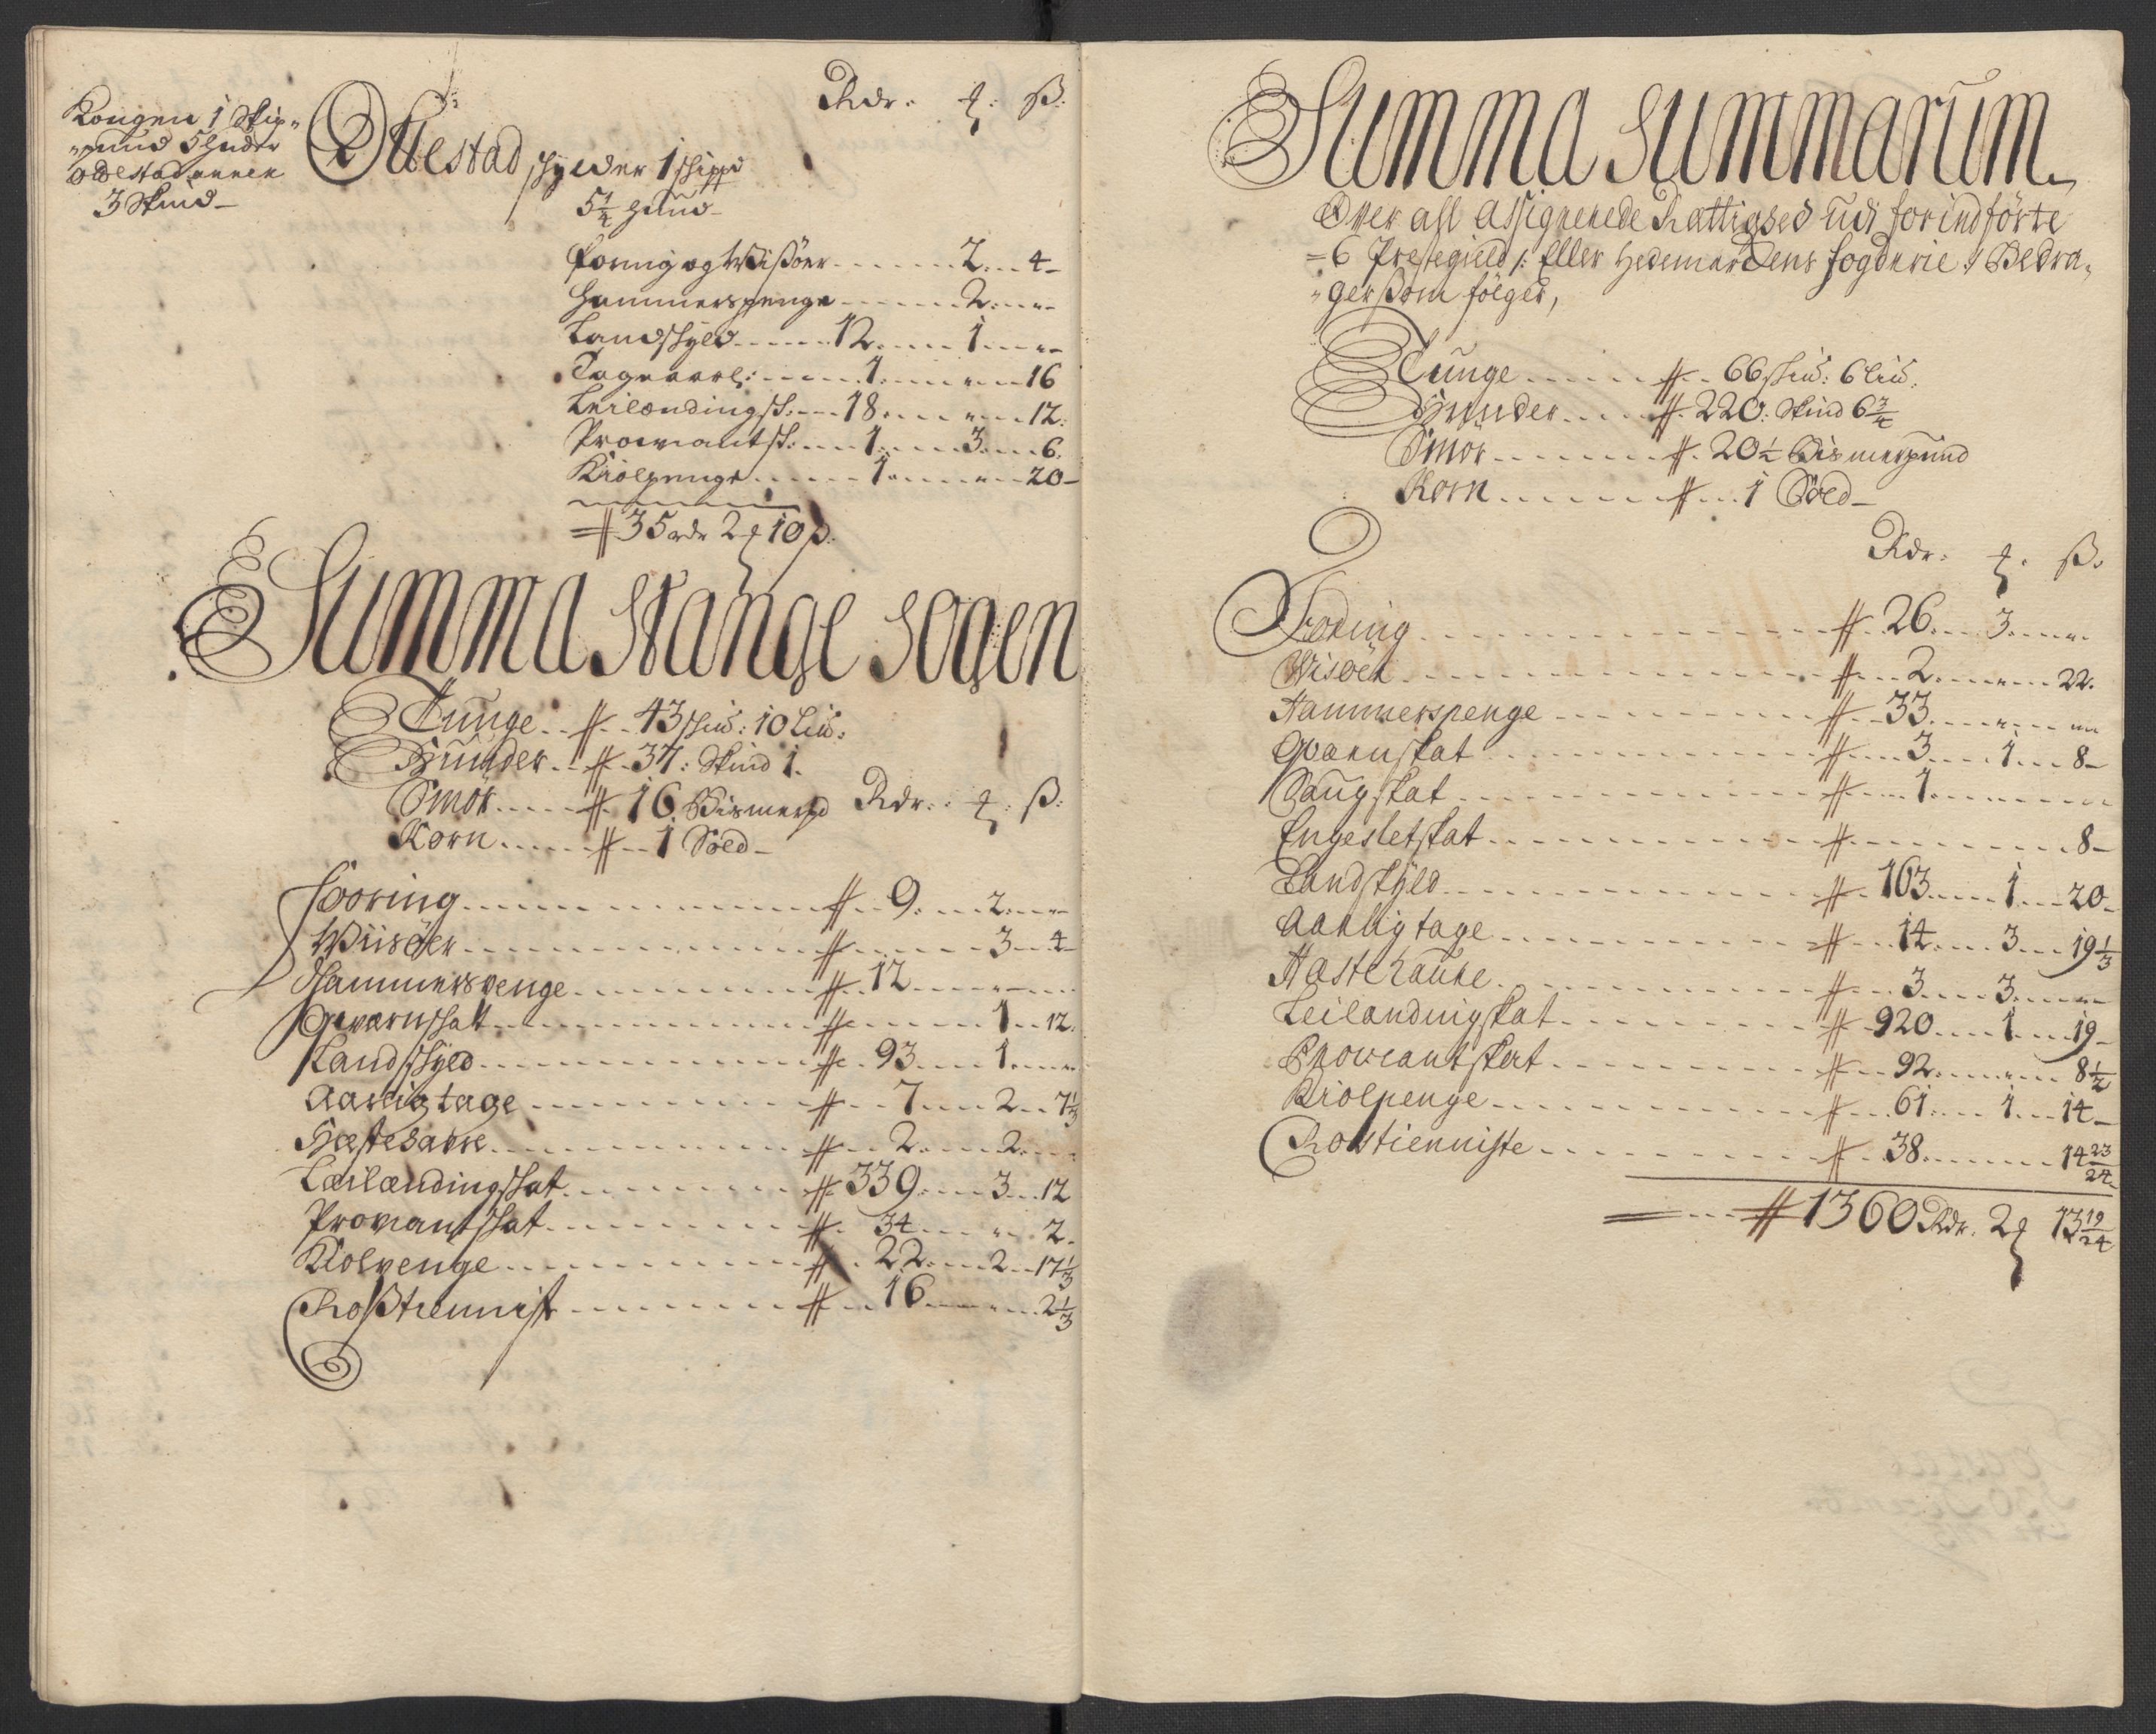 Rdr. ꝑ: ß:
Kongen 1 Skip-
pund 5 huder
odelstad annen
3 Skind
Ottestad schylder 1 schippd
5¼ huud
Foring og Wissører 2 4
Hammerspenge 2
Landschyld 12 1
Tagnaarl: 1 16
Leilændingsch: 18 12
Proviantsch: 1 3 6
Kiolpenge 1 20
35 rdr 2 ꝑ 10 ß:
Summa Stange Sogen
Tunge 43 schid: 10 Lid:
Huuder 37: Skind 1
Smör 16 Bismerpd
Korn 1 Sold
Rdr: ꝑ: ß:
Fooring 9 2
Wiisöer 3 4
Hammerspenge 12
Qwærnschatt 1 12
Landschyld 93 1
Aarligtage 7 2 7⅓
Hæstehaure 2 2
Leilændingschat 339 3 12
Proviantschat 34 2
Kiolpenge 22 2 17⅓
Rosstiennist 16 2⅓
Summa Summarum
Over all Assignerede Rættighed udi forindförte
6 Prestegield /: Eller Hedemarchens fogderie :/ Bedra-
ger som fölger,
Tunge 66 schid: 6 Lid:
Huuder 220: Skind 6¾
Smör 20½ Bismerpund
Korn 1 Sold
Rdr: ꝑ: ß:
Fooring 26 3
Wisöer 2 22
Hammerspenge 33
Qværnskat 3 1 8
Saugskat 1
Engesletskat 8
Landskyld 163 1 20
Aarligtage 14 3 19⅓
Hæstehaure 3 3
Leilændingskat 920 1 19
Proviantskat 92 8½
Kiolpenge 61 1 14
Rostienniste 38 14 23/24
1360 Rdr. 2 ꝑ 13 19/24